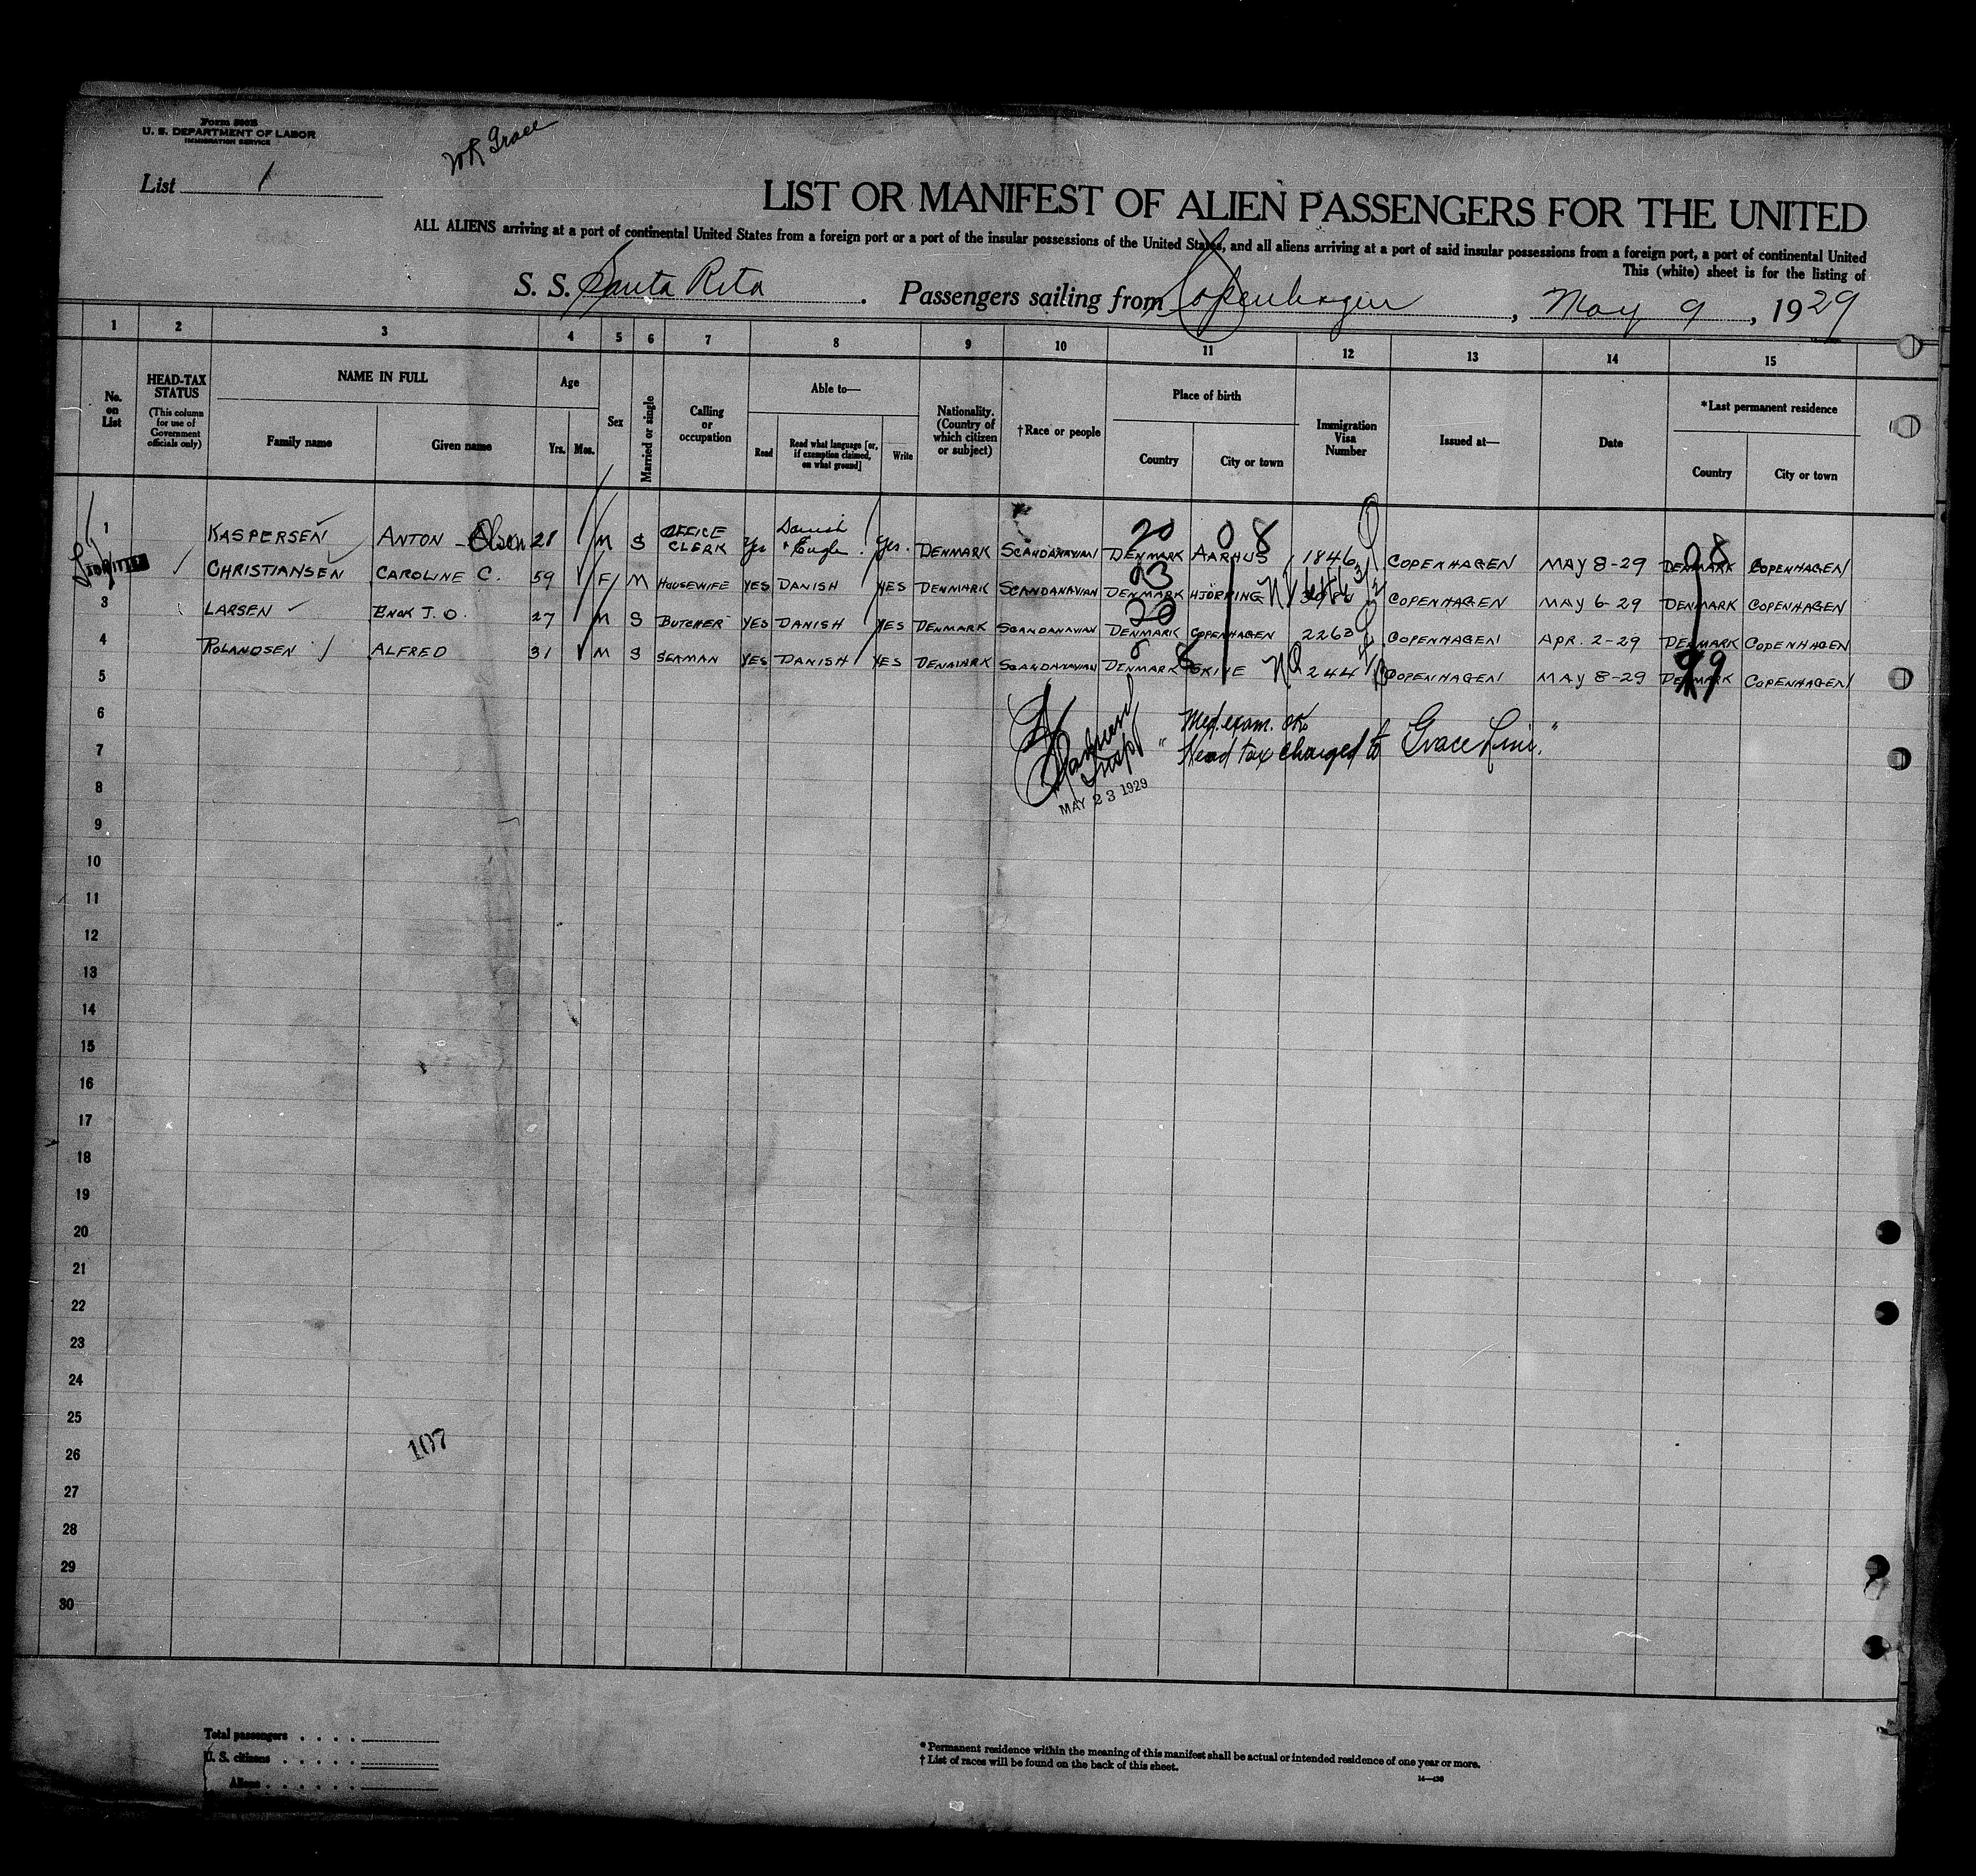 Form 500B
U. S. DEPARTMENT OF LABOR
IMMIGRATION SERVICE
WR Grace
List 1
LIST OR MANIFEST OF ALIEN PASSENGERS FOR THE UNITED
ALL ALIENS arriving at a port of continental United States from a foreign port or a port of the insular possessions of the United States, and all aliens arriving at a port of said insular possessions from a foreign port, a port of continental United
This (white) sheet is for the listing of
S. S. Santa Rita . Passengers sailing from Copenhagen , May 9 , 1929
1 2 3 4 5 6 7 8 9 10 11 12 13 14 15
No. on List
HEAD-TAX STATUS (This column for use of Government officials only)
NAME IN FULL
Family name Given name
Age
Yrs. Mos.
Sex
Married or single
Calling or occupation
Able to—
Read Read what language [or, if exemption claimed, on what ground] Write
Nationality. (Country of which citizen or subject)
†Race or people
Place of birth
Country City or town
Immigration Visa Number
Issued at—
Date
*Last permanent residence
Country City or town
1 KASPERSEN ANTON Olsen 28 M S OFFICE CLERK Yes Danish + Engl. Yes. DENMARK SCANDANAVIAN DENMARK AARHUS 1846 COPENHAGEN MAY 8-29 DENMARK COPENHAGEN
20 08
08
CHRISTIANSEN CAROLINE C. 59 F M HOUSEWIFE YES DANISH YES DENMARK SCANDANAVIAN DENMARK HJÖRRING COPENHAGEN MAY 6-29 DENMARK COPENHAGEN
3 LARSEN ENOK J. O. 27 M S BUTCHER YES DANISH YES DENMARK SCANDANAVIAN DENMARK COPENHAGEN 2263 COPENHAGEN APR. 2-29 DENMARK COPENHAGEN
4 ROLANDSEN ALFRED 31 M S SEAMAN YES DANISH YES DENMARK SCANDANAVIAN DENMARK SKIVE NQ 244 COPENHAGEN MAY 8-29 DENMARK COPENHAGEN
99
5
6
Med. exam. OK.
7
"Head tax charged to Grace Line."
Insp
MAY 23 1929
8
9
10
11
12
13
14
15
16
17
18
19
20
21
22
23
24
25
107
26
27
28
29
30
Total passengers . . . .
U. S. citizens . . . . .
Aliens . . . . . .
* Permanent residence within the meaning of this manifest shall be actual or intended residence of one year or more.
† List of races will be found on the back of this sheet.
14—430